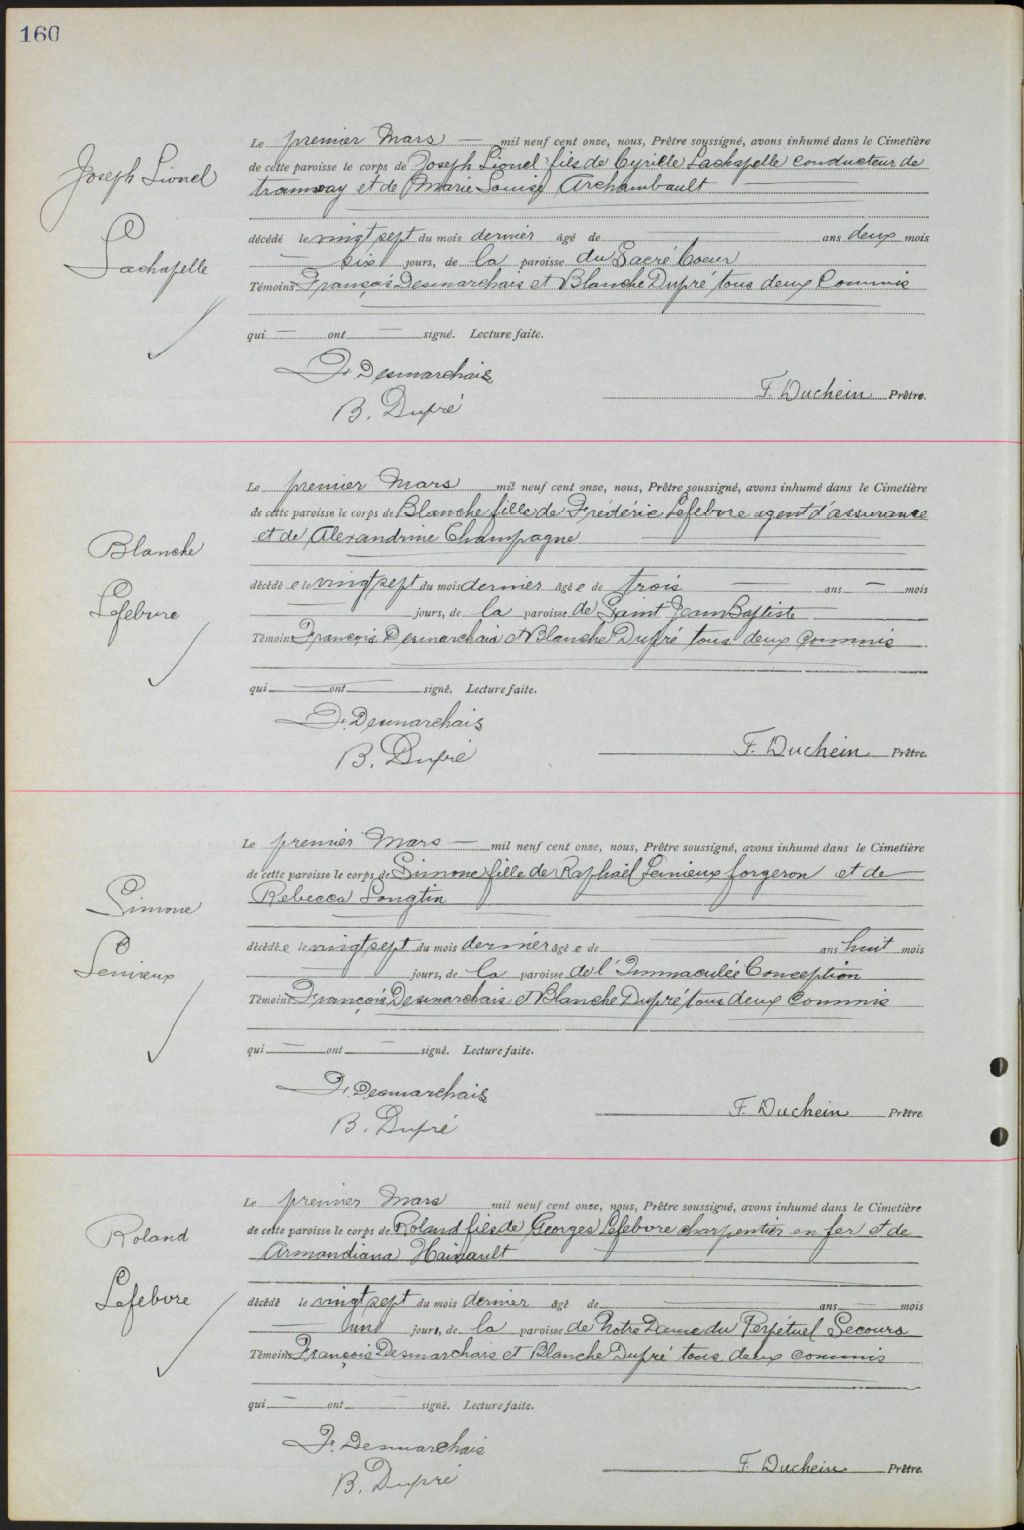 160
Joseph Lionel
Lachapelle
Le premier Mars — mil neuf cent onze, nous, Prêtre soussigné, avons inhumé dans le Cimetière
de cette paroisse le corps de Joseph Lionel fils de Cyrille Lachapelle conducteur de
tramway et de Marie Louise Archambault —
décédé le vingt sept du mois dernier âgé de — ans deux mois
— six jours, de la paroisse du Sacré Coeur
Témoins: François Desmarchais et Blanche Dupré tous deux Commis
qui — ont — signé. Lecture faite.
F. Desmarchais
B. Dupré
F. Duchein Prêtre.
Blanche
Lefebvre
Le premier Mars mil neuf cent onze, nous, Prêtre soussigné, avons inhumé dans le Cimetière
de cette paroisse le corps de Blanche fille de Frédéric Lefebvre agent d'assurance
et de Alexandrine Champagne
décédée le vingt sept du mois dernier âgée de trois — ans — mois
— jours, de la paroisse de Saint Jean Baptiste
Témoins François Desmarchais et Blanche Dupré tous deux commis
qui — ont — signé. Lecture faite.
F. Desmarchais
B. Dupré
F. Duchein Prêtre.
Simone
Lemieux
Le premier Mars — mil neuf cent onze, nous, Prêtre soussigné, avons inhumé dans le Cimetière
de cette paroisse le corps de Simone fille de Raphaël Lemieux forgeron et de
Rebecca Longtin
décédée le vingt sept du mois dernier âgée de — ans huit mois
— jours, de la paroisse de l'Immaculée Conception
Témoins François Desmarchais et Blanche Dupré tous deux Commis
qui — ont — signé. Lecture faite.
F. Desmarchais
B. Dupré
F. Duchein Prêtre.
Roland
Lefebvre
Le premier Mars mil neuf cent onze, nous, Prêtre soussigné, avons inhumé dans le Cimetière
de cette paroisse le corps de Roland fils de Georges Lefebvre charpentier en fer et de
Armandiana Hainault
décédé le vingt sept du mois dernier âgé de — ans — mois
— un jours, de la paroisse de Notre Dame du Perpétuel Secours
Témoins François Desmarchais et Blanche Dupré tous deux commis
qui — ont — signé. Lecture faite.
F. Desmarchais
B. Dupré
F. Duchein Prêtre.